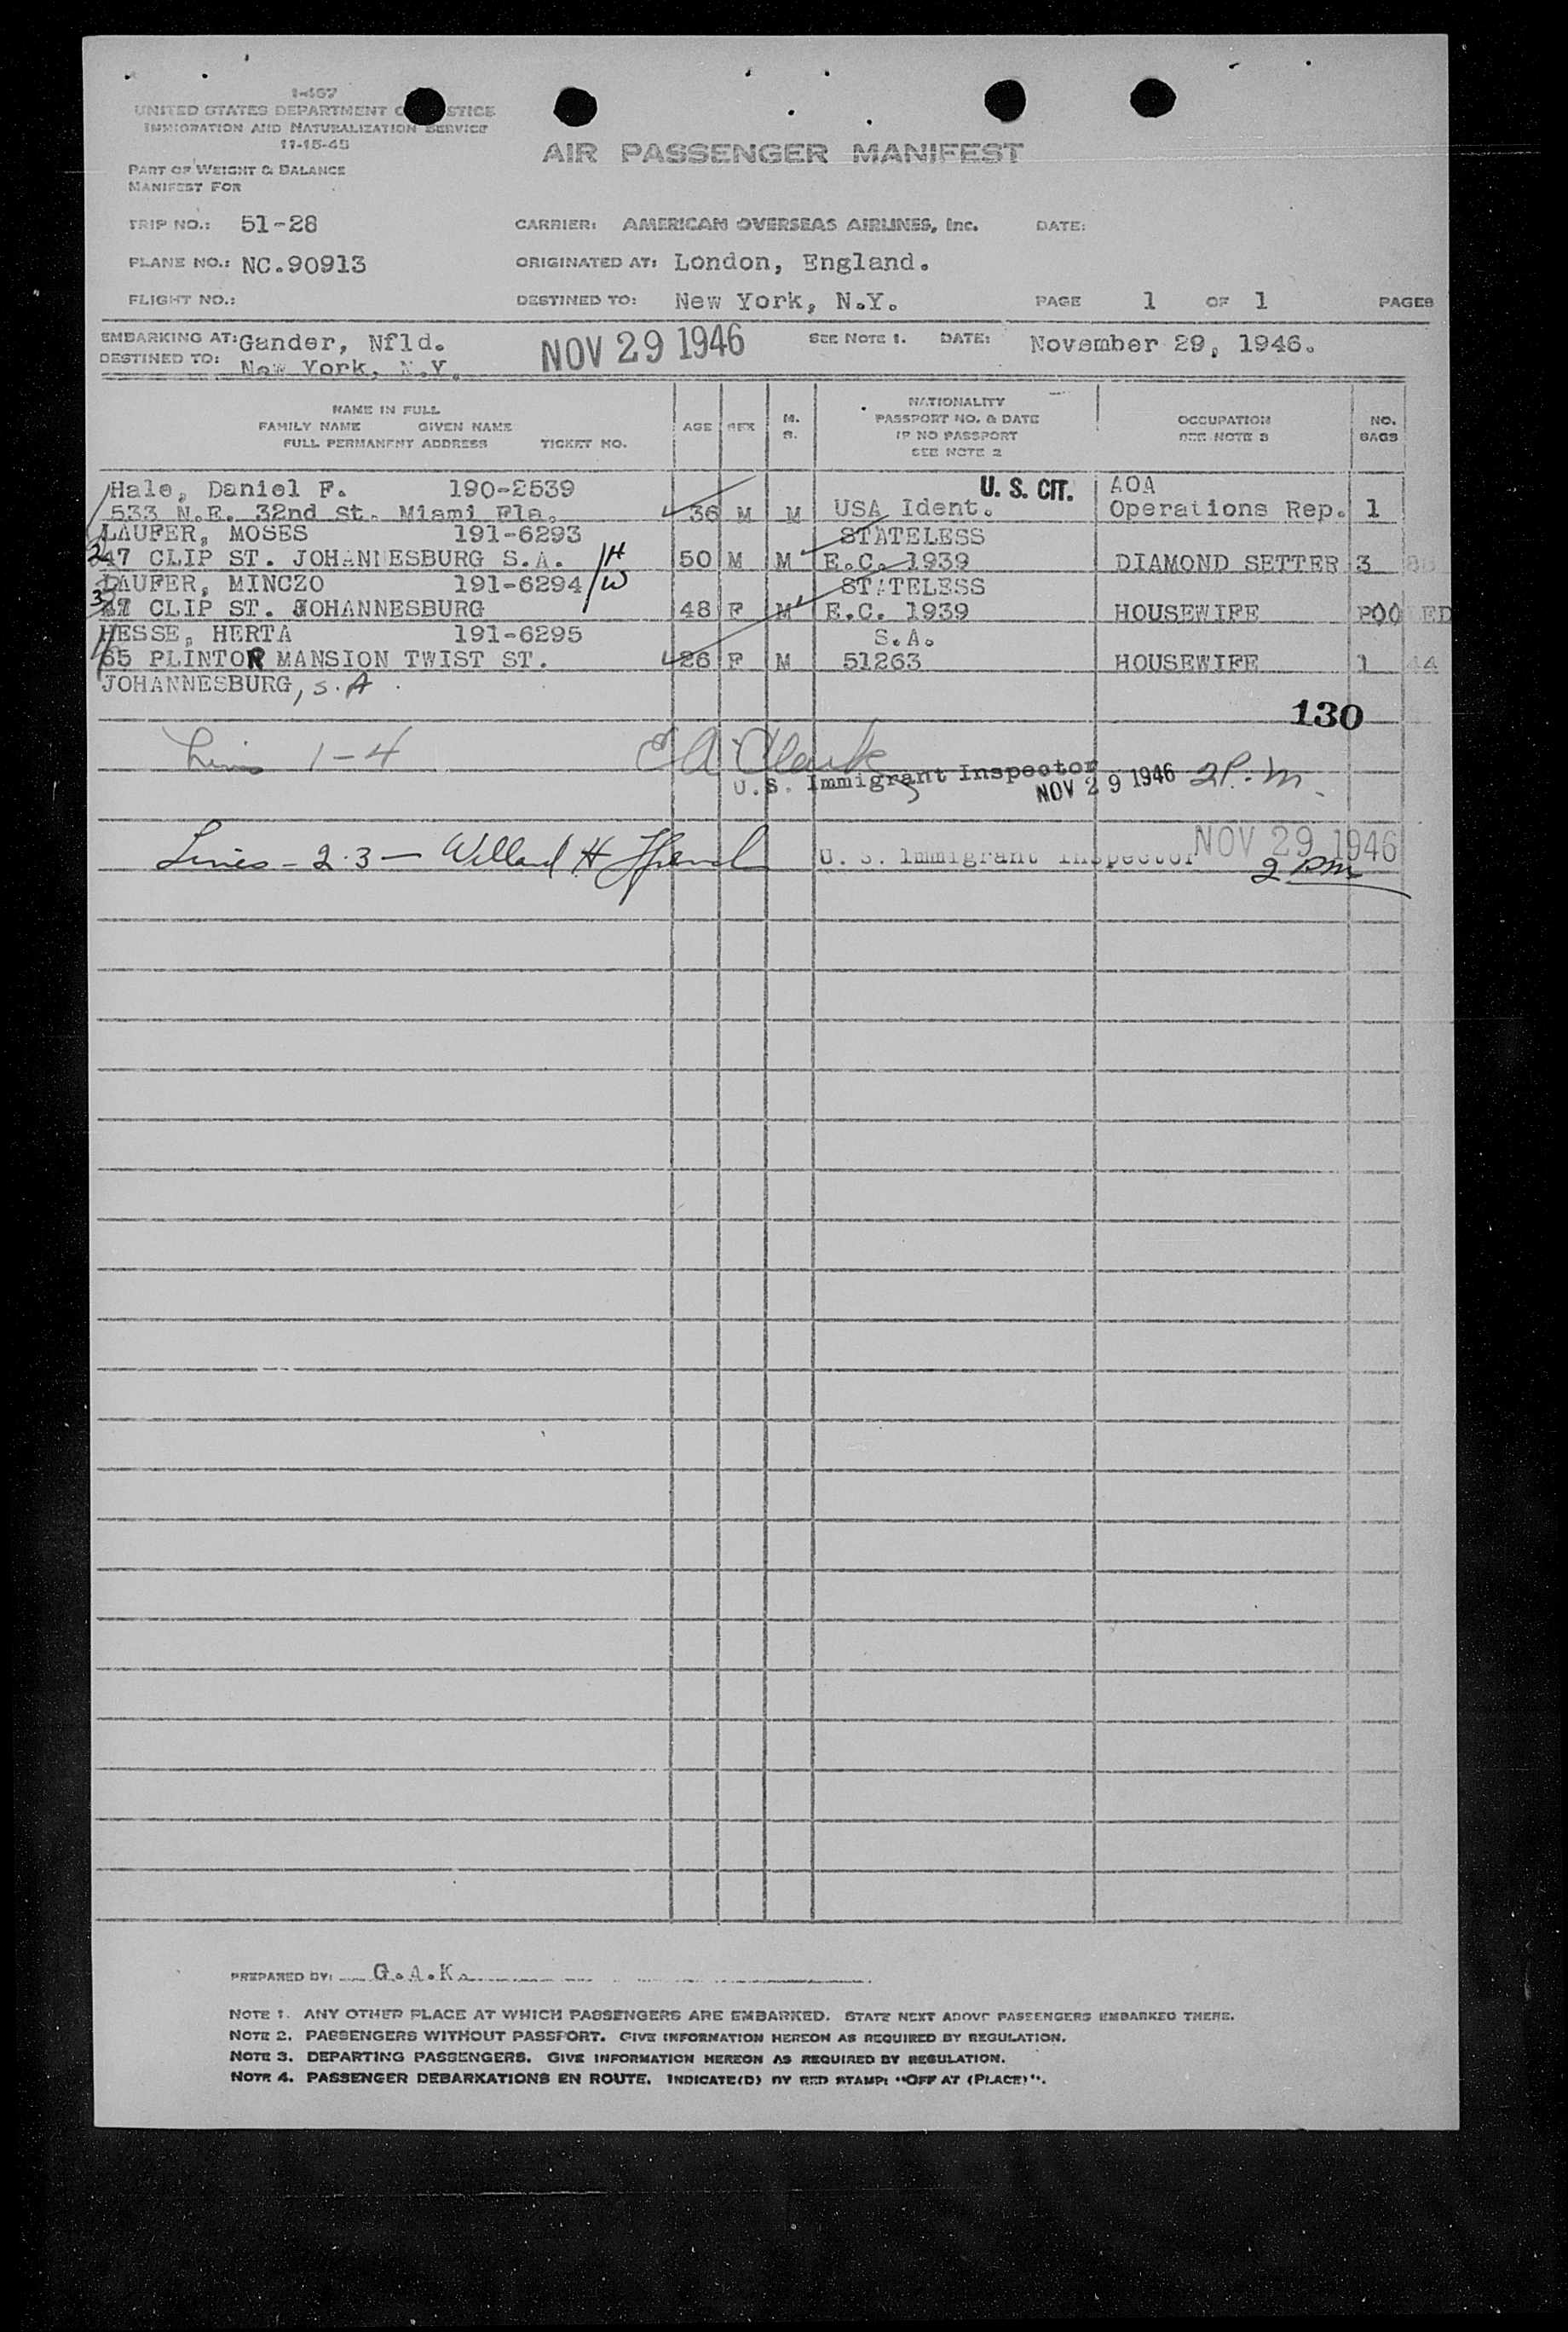 I-467
UNITED STATES DEPARTMENT O STICE
IMMIGRATION AND NATURALIZATION SERVICE
11-15-45
AIR PASSENGER MANIFEST
PART OF WEIGHT & BALANCE
MANIFEST FOR
TRIP NO.: 51-28 CARRIER: AMERICAN OVERSEAS AIRLINES, Inc. DATE:
PLANE NO.: NC.90913 ORIGINATED AT: London, England.
FLIGHT NO.: DESTINED TO: New York, N.Y. PAGE 1 OF 1 PAGES
EMBARKING AT: Gander, Nfld. NOV 29 1946 SEE NOTE 1. DATE: November 29, 1946.
DESTINED TO: New York, N.Y.
NAME IN FULL
FAMILY NAME GIVEN NAME
FULL PERMANENT ADDRESS TICKET NO.
AGE SEX M. S.
NATIONALITY
PASSPORT NO. & DATE
IF NO PASSPORT
SEE NOTE 2
OCCUPATION
SEE NOTE 3
NO.
BAGS
Hale, Daniel F. 190-2539 U. S. CIT. AOA
533 N.E. 32nd St. Miami Fla. 36 M M USA Ident. Operations Rep. 1
LAUFER, MOSES 191-6293 STATELESS
2 47 CLIP ST. JOHANNESBURG S.A. H 50 M M E.C. 1939 DIAMOND SETTER 3
LAUFER, MINCZO 191-6294 W STATELESS
3 47 CLIP ST. JOHANNESBURG 48 F M E.C. 1939 HOUSEWIFE POO ED
HESSE, HERTA 191-6295 S.A.
65 PLINTOR MANSION TWIST ST. 26 F M 51263 HOUSEWIFE 1 44
JOHANNESBURG, S.A.
130
Lines 1-4 E A Clark
U.S. Immigrant Inspector NOV 29 1946 2 P.m.
Lines - 2.3 - Willard H. U. S. Immigrant Inspector NOV 29 1946
2 pm
PREPARED BY: G.A.K.
NOTE 1. ANY OTHER PLACE AT WHICH PASSENGERS ARE EMBARKED. STATE NEXT ABOVE PASSENGERS EMBARKED THERE.
NOTE 2. PASSENGERS WITHOUT PASSPORT. GIVE INFORMATION HEREON AS REQUIRED BY REGULATION.
NOTE 3. DEPARTING PASSENGERS. GIVE INFORMATION HEREON AS REQUIRED BY REGULATION.
NOTE 4. PASSENGER DEBARKATIONS EN ROUTE. INDICATE(D) BY RED STAMP: "OFF AT (PLACE)".